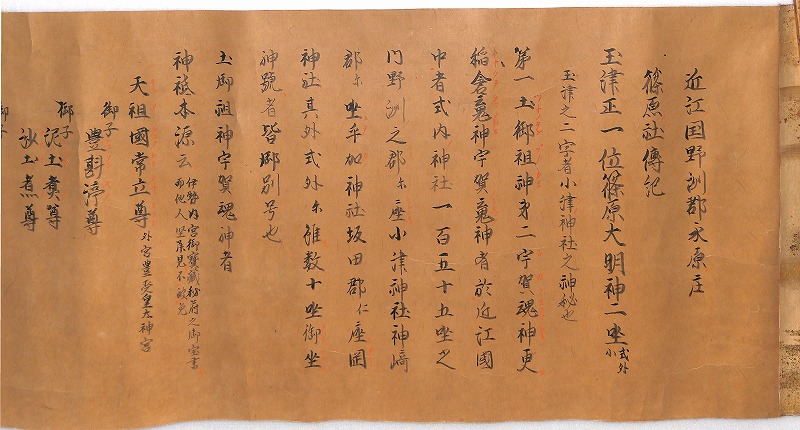 近江国野洲郡永原庄
篠原社傳紀
玉津正一位篠原大明神二坐式外小
玉津之二字者小津神社之神秘也
第一土御祖神第二宇賀魂神更
稲倉魂神宇賀魂神者於近江國
中者式内神社一百五十五坐之
内野洲之郡尓座小津神社神﨑
郡尓坐乎加神社坂田郡仁座岡
神社其外式外尓雖数十坐御坐
神號者皆即別号也
土御祖神宇賀魂神者
神祇本源云伊勢内宮御寶蔵秘府之御宝書而他人堅禁見不被免
天祖國常立尊外宮豊受皇太神宮
御子
豊斟渟尊
御子
泥土煮尊
沙土煮尊
御子